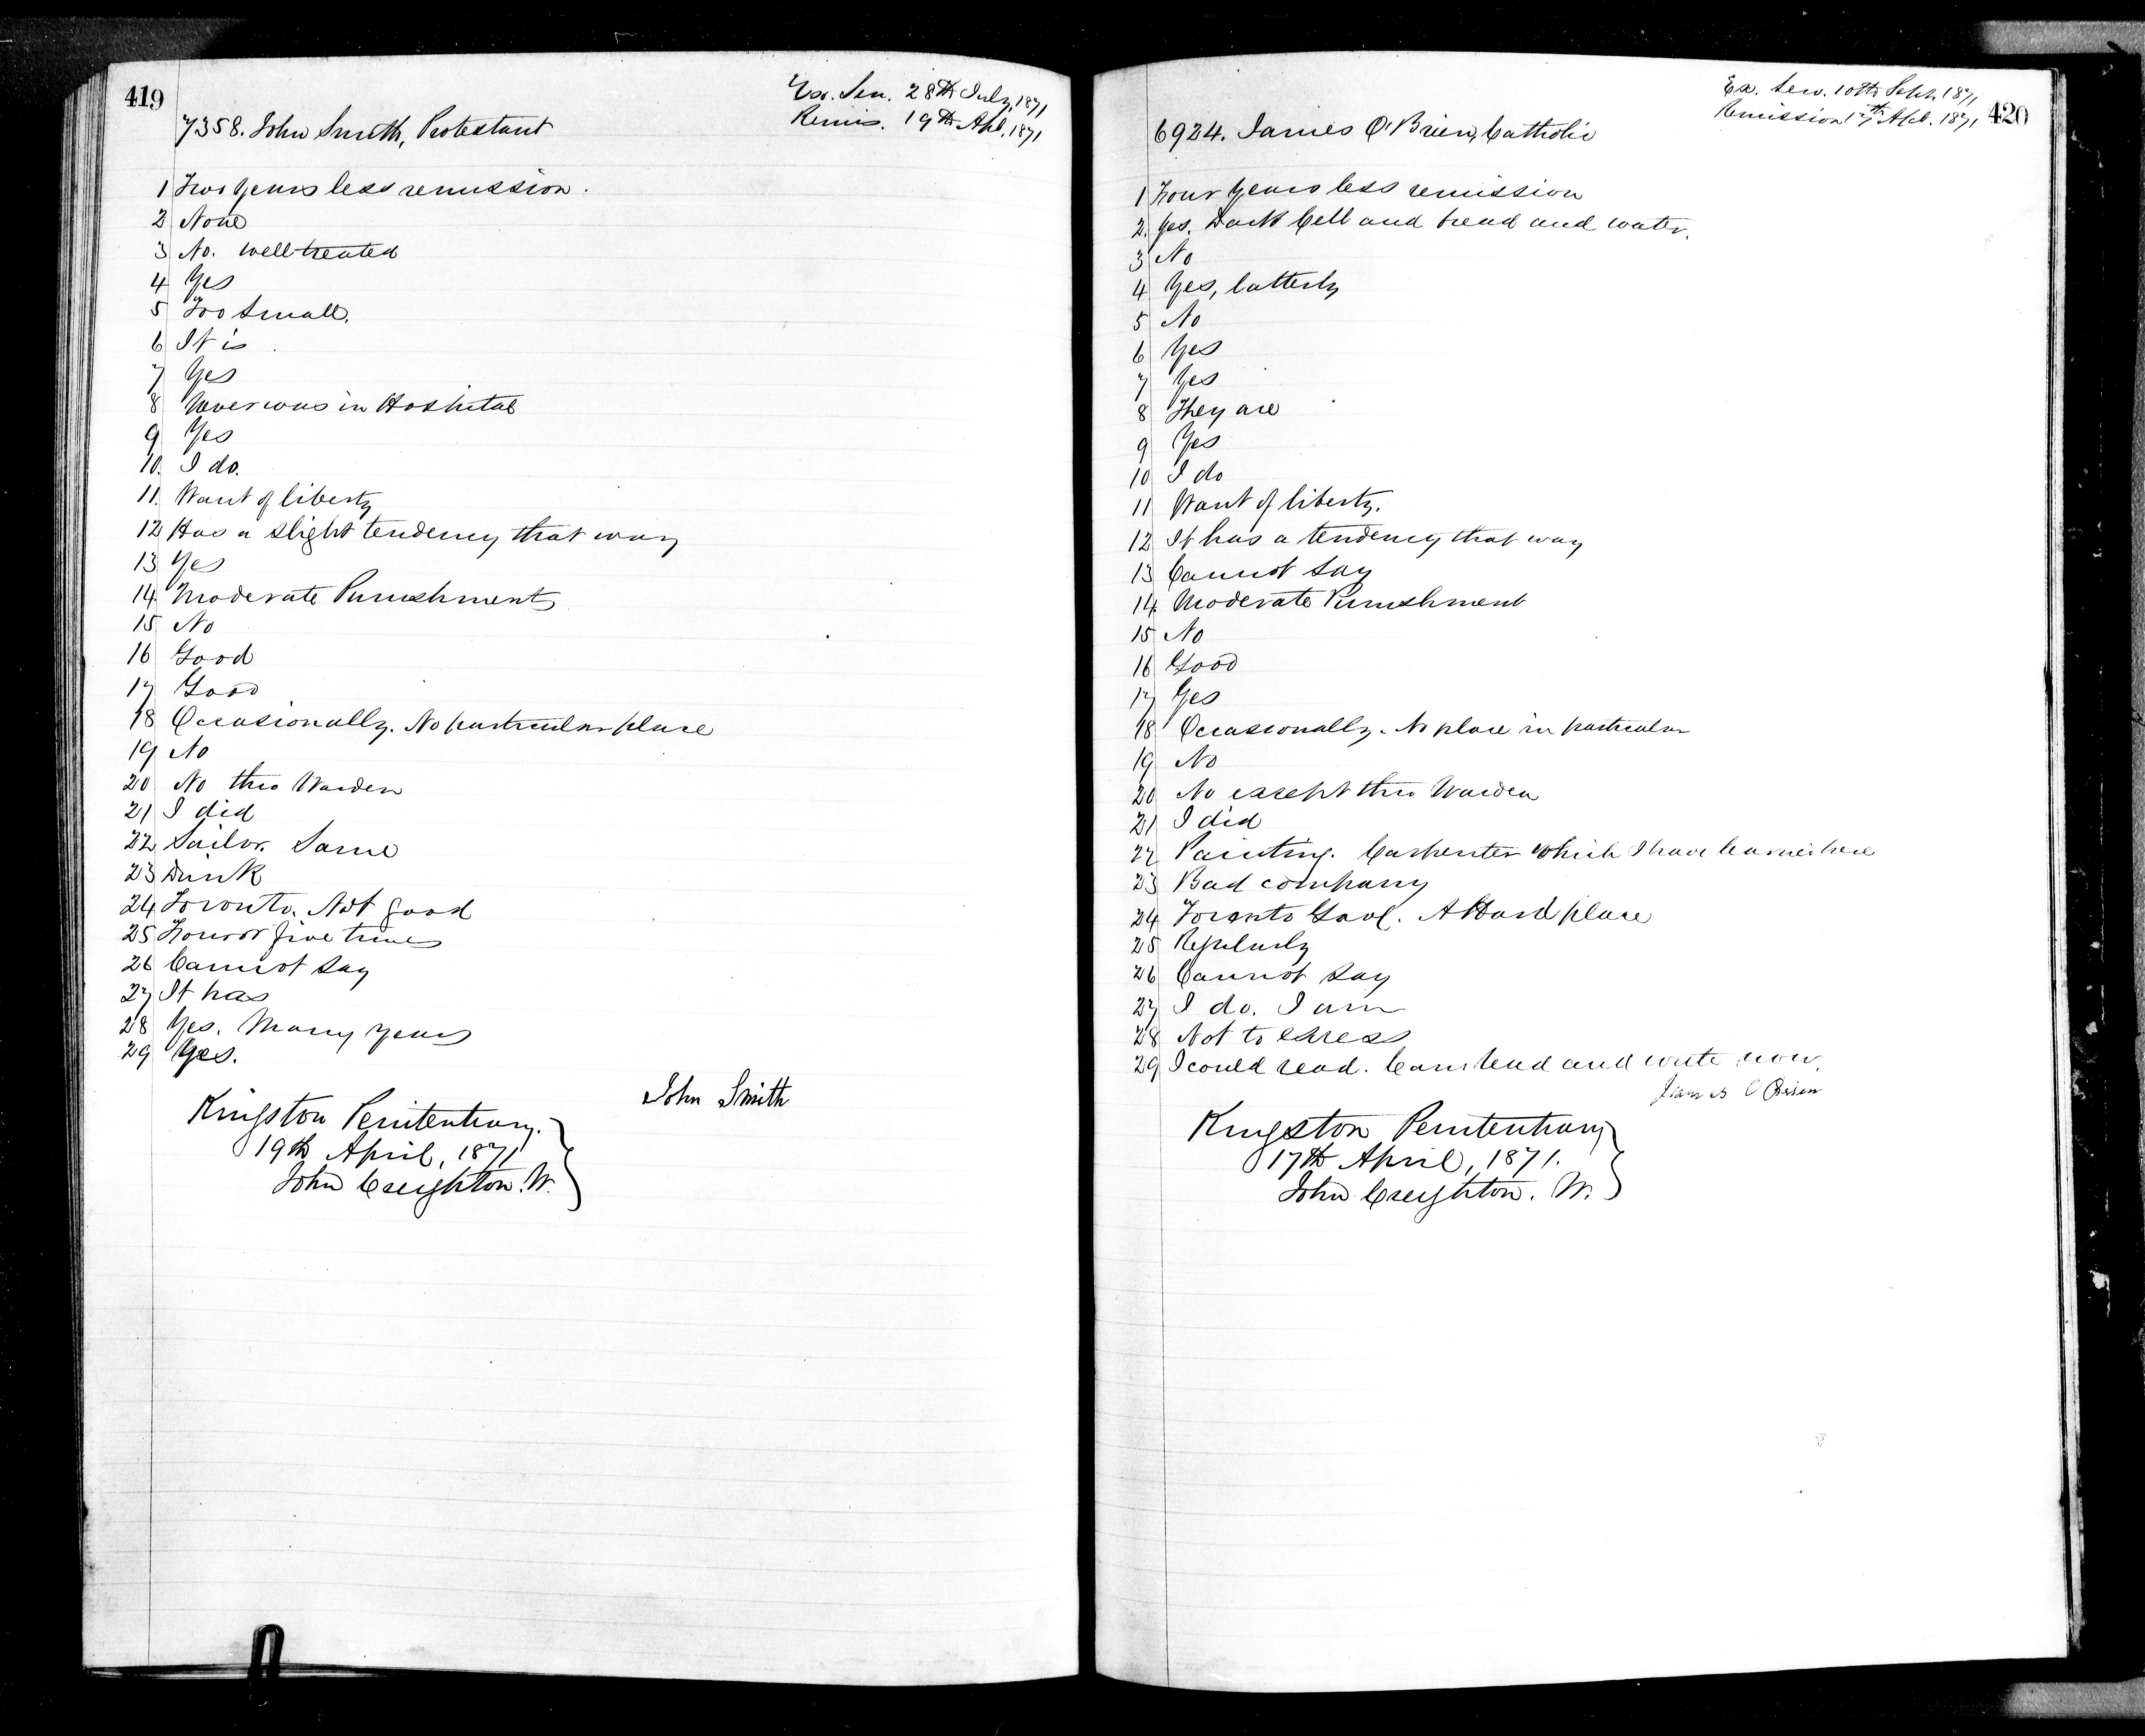 419
Ex. Sen. 28th July, 1871
Remis. 19th Apl. 1871
7358. John Smith, Protestant
1 Two Years less remission.
2 None
3 No. well treated
4 Yes
5 Too Small.
6 It is
7 Yes
8 Never was in Hospital
9 Yes
10. I do.
11. Want of liberty
12 Has a slight tendency that way
13 Yes
14 Moderate Punishment
15 No
16 Good
17 Good
18 Occasionally. No particular place
19 No
20 No thro Warden
21 I did
22 Sailor. Same
23 Drink
24 Toronto. Not good
25 Four or five times
26 Cannot Say
27 It has
28 Yes. Many years
29 Yes.
John Smith
Kingston Penitentiary.
19th April, 1871
John Creighton. W.
420
Ex. Sen. 10th Sept. 1871
Remission 17th Apl. 1871
6924. James O'Brien, Catholic
1 Four Years less remission
2. Yes. Dark Cell and bread and water.
3 No
4 Yes, latterly
5 No
6 Yes
7 Yes
8 They are
9 Yes
10 I do
11 Want of liberty.
12 It has a tendency that way
13 Cannot Say
14 Moderate Punishment
15 No
16 Good
17 Yes
18 Occasionally. No place in particular
19 No
20 No except thro Warden
21 I did
22 Painting. Carpenter which I have learned here
23 Bad company
24 Toronto Gaol. A Hard place
25 Regularly
26 Cannot Say
27 I do. I am
28 Not to excess
29 I could read. Can read and write now.
James O Brien
Kingston Penitentiary
17th April, 1871.
John Creighton. W.